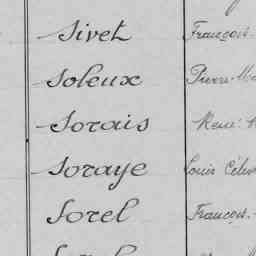 Sivet François
Soleux Pierre
Sorais René
Soraye Louis
Sorel François